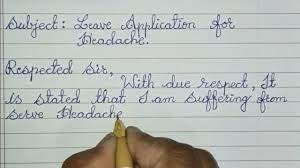 Subject: Leave Application for
Headache.
Respected Sir,
With due respect, It
is stated that I am suffering from
serve Headache